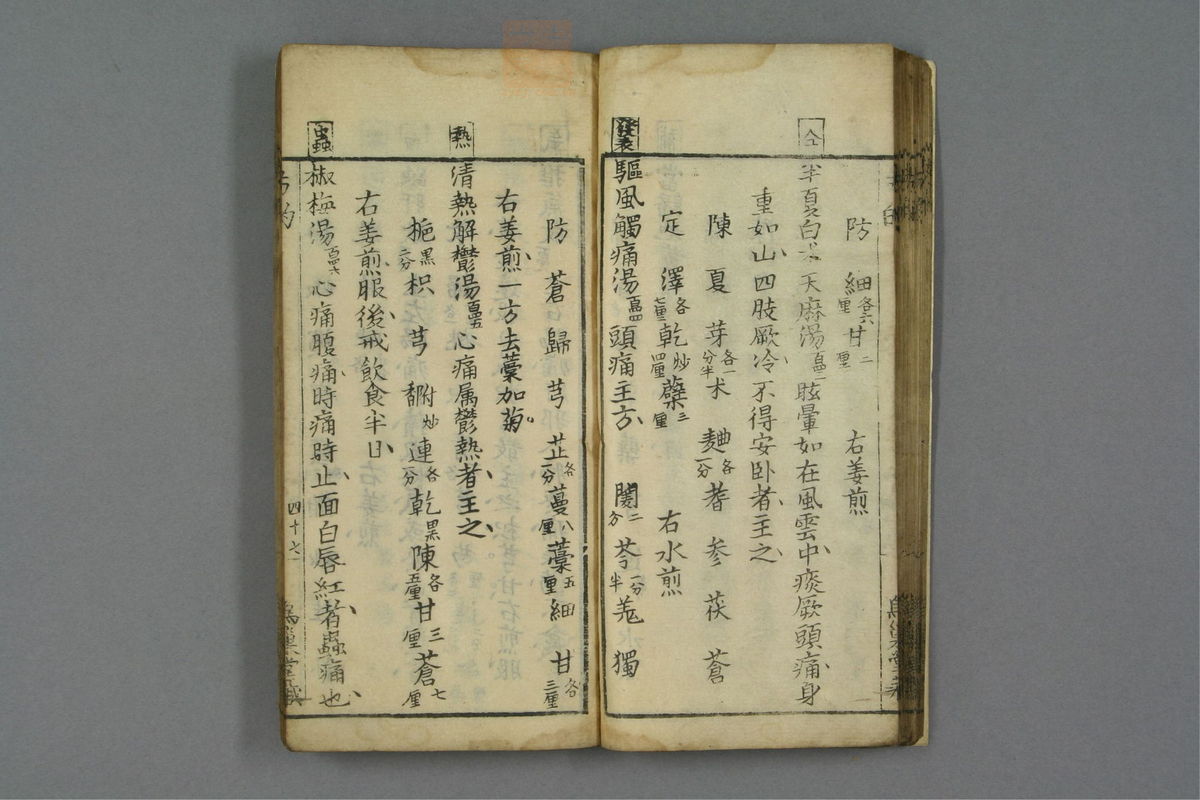 防 細各六厘 甘二厘 右姜煎
仝
半夏白朮天麻湯 眩暈如在風雲中痰厥頭痛身
重如山四肢厥冷不得安臥者主之
陳 夏 芽各一分半 朮 麯各一分 蓍 参 茯 蒼
定 澤各七厘 乾炒四厘 蘗三厘 右水煎
發表
驅風觸痛湯百四四 頭痛主方 闕二分 芩一分半 羗 獨
防 蒼 歸 芎 芷各一分 蔓八厘 藁五厘 細 甘各三厘
右姜煎一方去藁加菊
熱
清熱解鬱湯百四五 心痛属鬱熱者主之
梔黒二分 枳 芎 附炒 連各一分 乾黒 陳各五厘 甘三厘 蒼七厘
右姜煎服後戒飲食半日
蟲
椒梅湯百四六 心痛腹痛時痛時止面白唇紅者蟲痛也
四十六